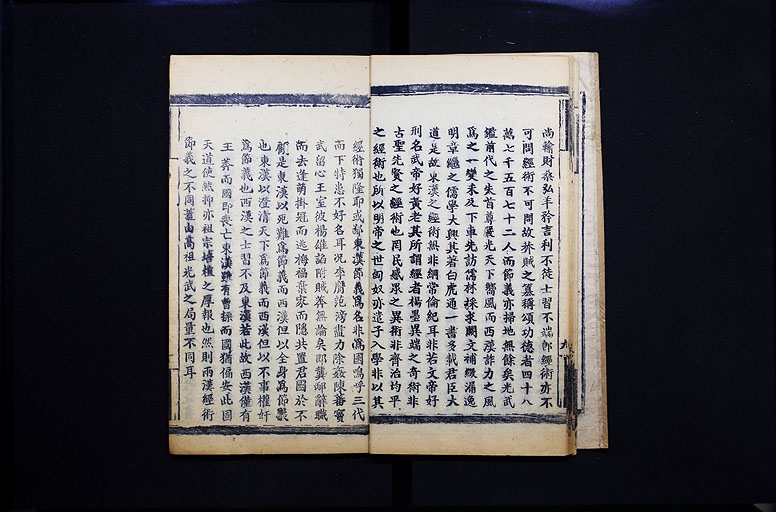 尚輸財桑弘羊矜言利不徒士習不端卽經術亦不
可問經術不可問故莽賊之簒稱頌功德者四十八
萬七千五百七十二人而節義亦掃地無餘矣光武
鑑前代之失首尊嚴光天下嚮風而西漢詐力之風
爲之一變未及下車先訪儒林採求闕文補綴漏逸
明章繼之儒學大興其著白虎通一書多載君臣大
道是故東漢之經術無非綱常倫紀耳非若文帝好
刑名武帝好黃老其所謂經者楊墨異端之奇術非
古聖先賢之經術也罔民惑衆之異術非齊治均平
之經術也所以明帝之世匈奴亦遣子入學非以其
經術獨隆耶或鄙東漢節義爲名非爲國嗚呼三代
而下特患不好名耳况李膺范滂盡力除姦陳蕃竇
武留心王室彼楊雄諂附賊莽無論矣卽龔邴辭職
而去逢萌掛冠而逃梅福棄家而隱共置君國於不
顧是東漢以死難爲節義而西漢但以全身爲節義
也東漢以澄清天下爲節義而西漢但以不事權奸
爲節義也西漢之士習不及東漢若此故西漢僅有
王莽而國即喪亡東漢雖有曹操而國猶偏安此固
天道使然抑亦祖宗培植之厚報也然則兩漢經術
節義之不同蓋由高祖光武之局量不同耳